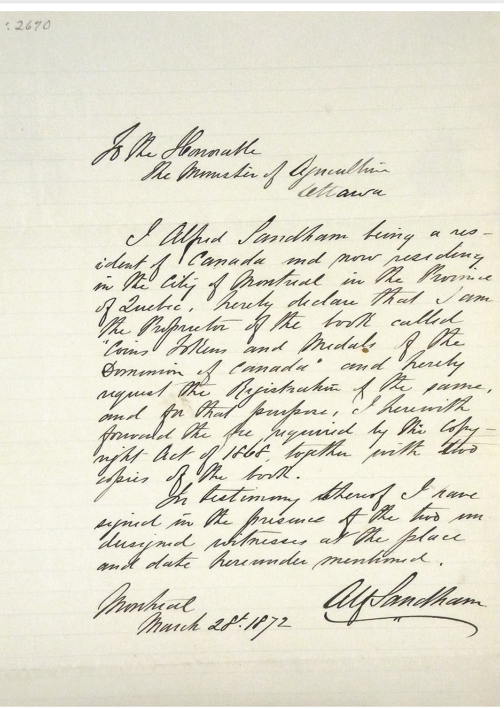 : 2670
To the Honorable
The Minister of Agriculture
Ottawa
I Alfred Sandham being a res-
ident of Canada and now residing
in the City of Montreal in the Province
of Quebec, hereby declare that I am
the Proprietor of the book called
"Coins Tokens and Medals of the
Dominion of Canada" and hereby
request the Registration of the same,
and for that purpose, I herewith
forward the fee, required by the Copy-
right Act of 1868, together with two
copies of the book.
In testimony thereof I have
signed in the presence of the two un
dersigned witnesses at the place
and date hereunder mentioned.
Montreal
March 28t. 1872
Alf Sandham